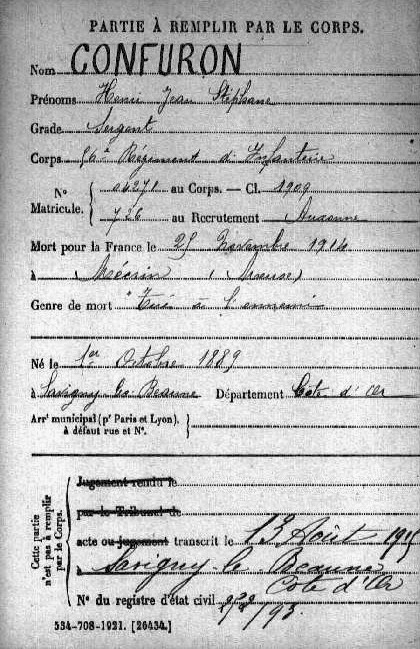 PARTIE À REMPLIR PAR LE CORPS.
Nom CONFURON
Prénoms Henri Jean Stéphane
Grade Sergent
Corps 56e Régiment d'Infanterie
N° Matricule. 04271 au Corps. — Cl. 1909
726 au Recrutement Auxonne
Mort pour la France le 25 Novembre 1914
à Mécrin (Meuse)
Genre de mort Tué à l'ennemi
Né le 1er Octobre 1889
à Savigny les Beaune Département Côte d'Or
Arrt municipal (pr Paris et Lyon).
à défaut rue et N°.
Cette partie n'est pas à remplir par le Corps.
Jugement rendu le
par le Tribunal de
acte ou jugement transcrit le 13 Août
à Savigny-les-Beaune
Côte d'Or
N° du registre d'état civil
534-708-1921. [26434.]